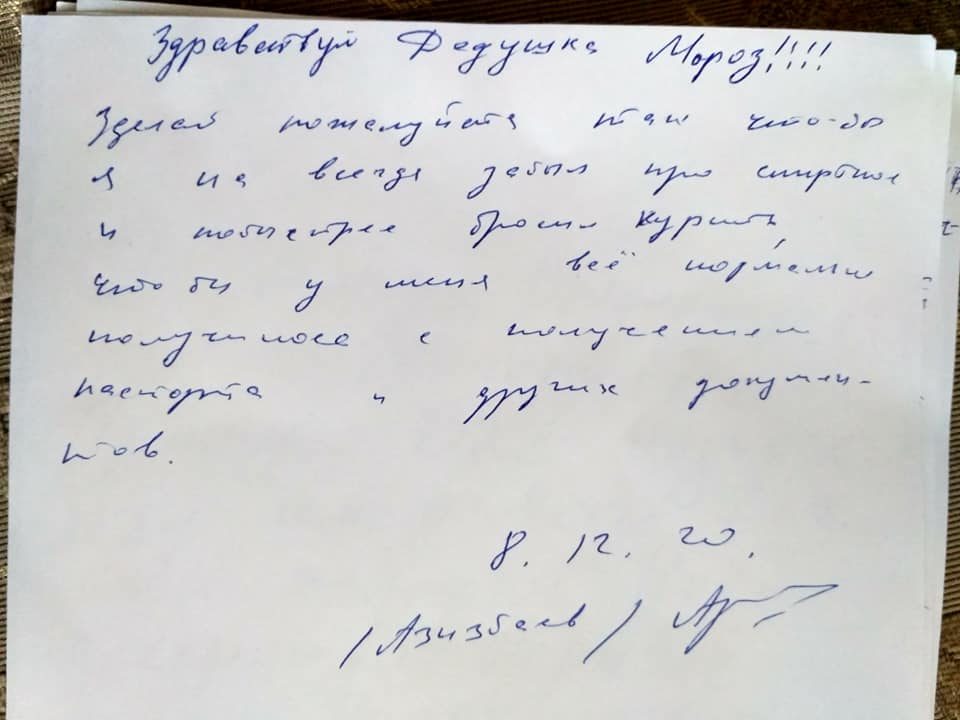 Здравствуй Дедушка Мороз!!!!
Зделай пожалуйста так что-бы
я на всегда забыл про спиртное
и побыстрее бросил курить,
что бы у меня всё нормально
получилося с получением
паспорта и других докумен-
тов.
8. 12. 20.
/Азизбаев/